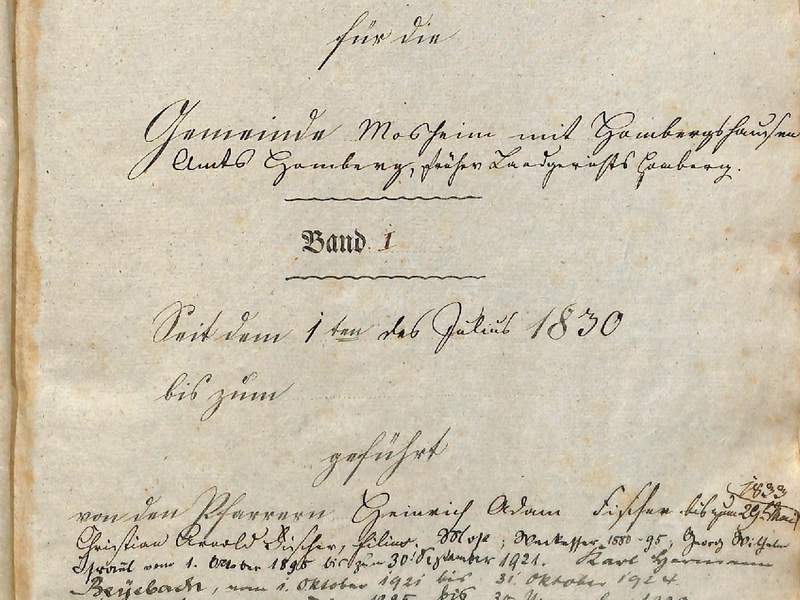 für die
Gemeinde Mosheim mit Hombergshausen
Amts Homberg, früher Landgerichts Homberg.
Band 1
Seit dem 1ten des Julius 1830
bis zum
geführt
1833
von den Pfarrern Heinrich Adam Fischer bis zum 29 Mai
Christian Arnold Fischer, filius, 1880-95, Georg Wilhelm
vom 1. Oktober 1895 bis zum 30. September 1921. Karl Hermann
vom 1. Oktober 1921 bis 31. Oktober 1924.
bis